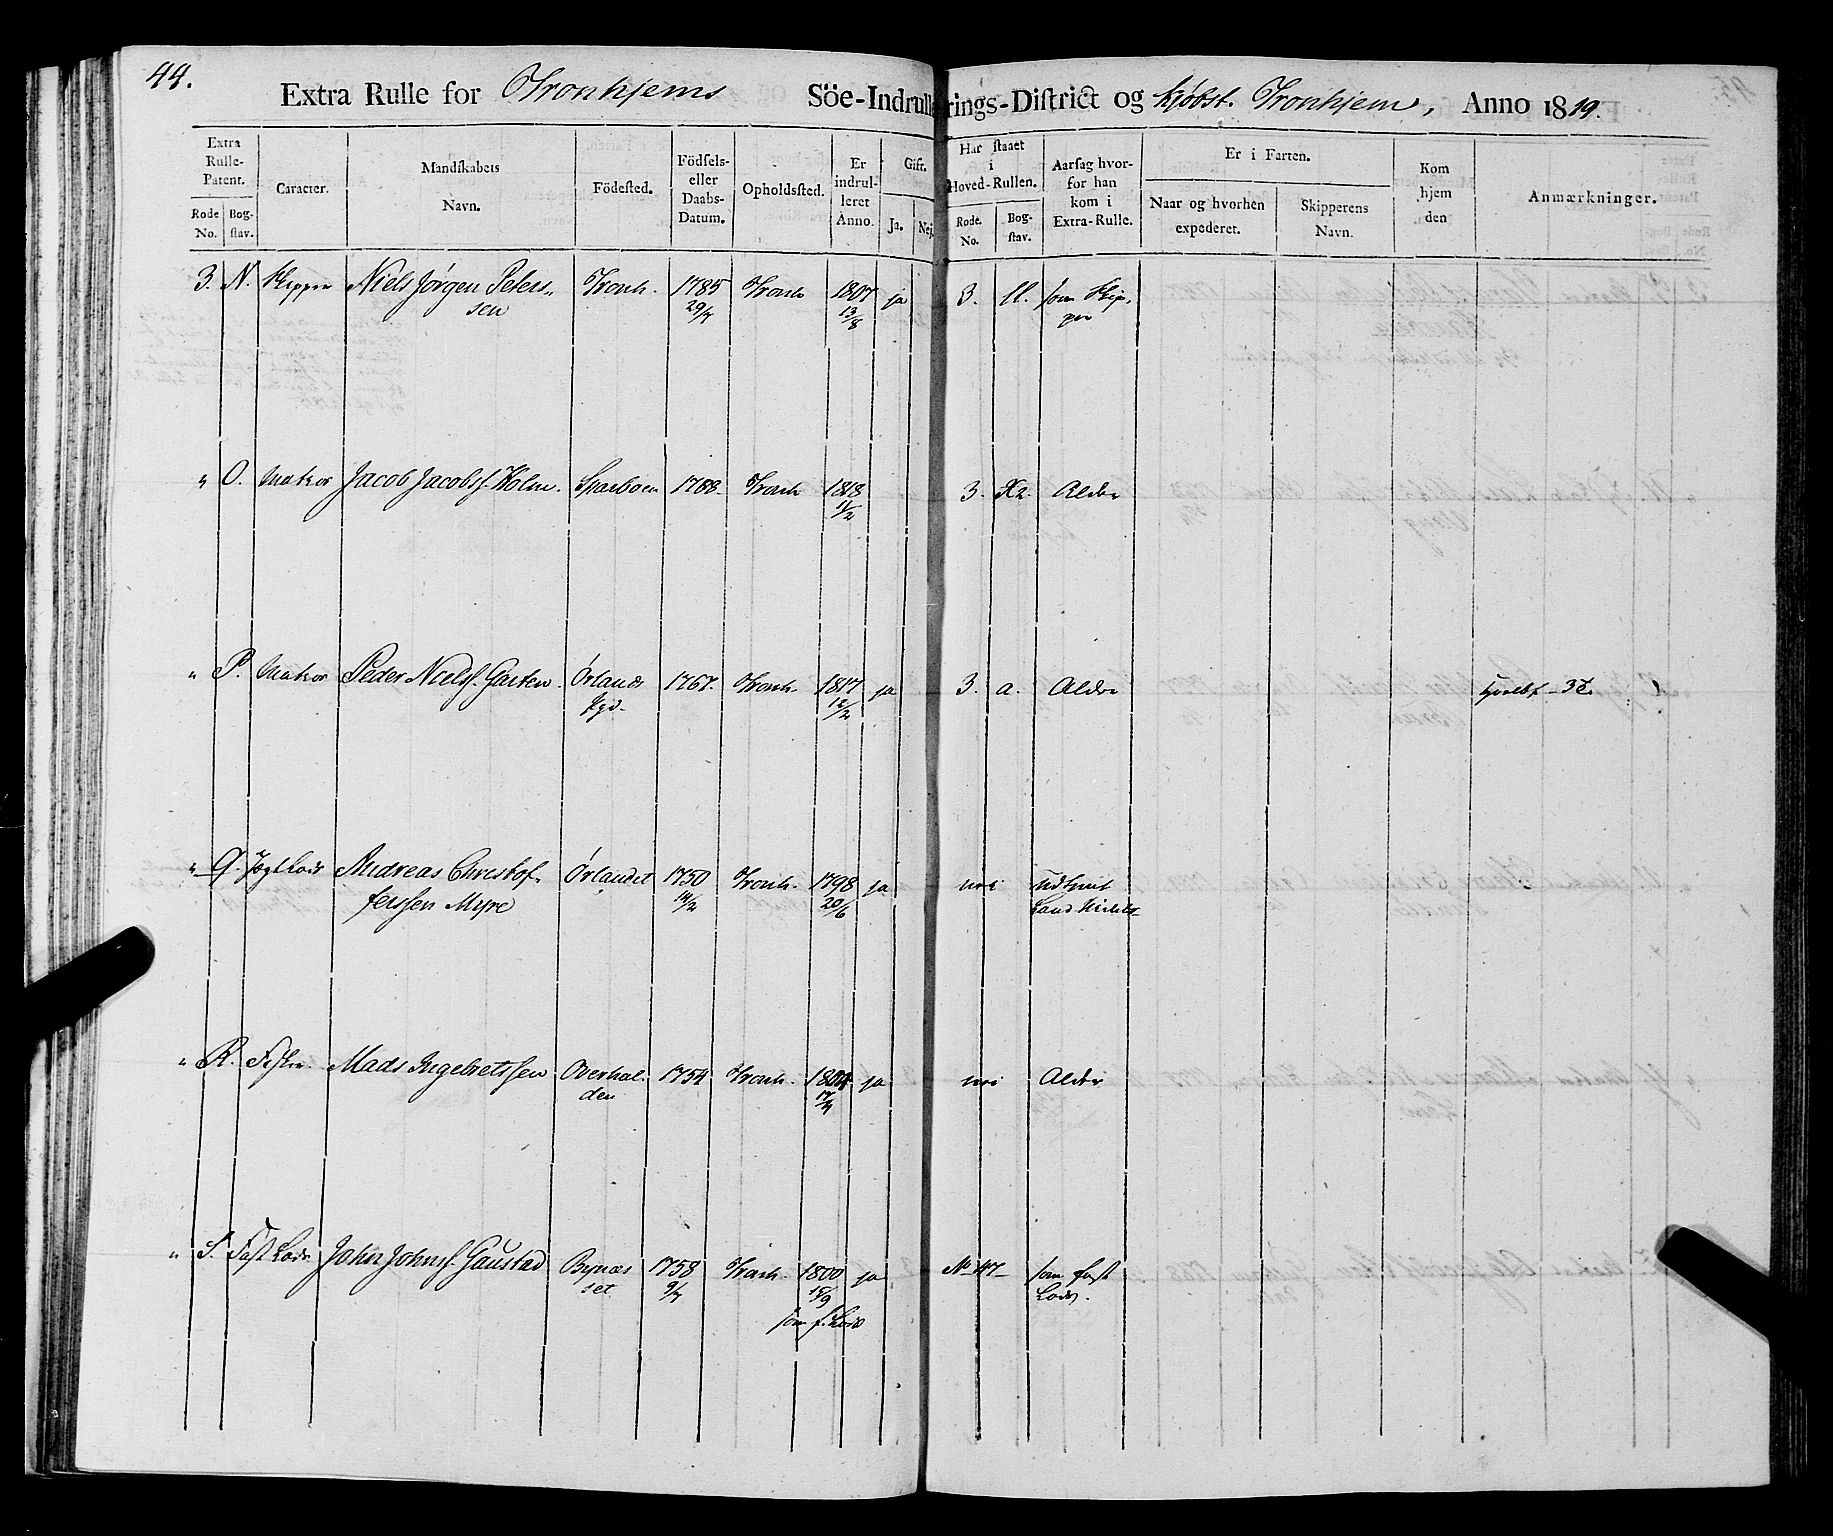 44.
Extra Rulle for Tronhjems Söe-Indrullerings-District og kjøbst. Tronhjem, Anno 1819.
Extra Rulle-Patent. Caracter. Mandskabets Navn. Födested. Födsels- eller Daabs-Datum. Opholdssted. Er indrulleret Anno. Gift. Har staaet i Hoved-Rullen. Aarsag hvorfor han kom i Extra-Rulle. Er i Farten. Kom hjem den Anmærkninger.
Rode No. Bogstav. Ja. Nej. Rode. No. Bogstav. Naar og hvorhen expederet. Skipperens Navn.
3. N. Skipper Niels Jörgen Peters- Tronh. 1785 Tronh 1807 ja 3. ll. som Skip-
sen 29/7 13/8 per
" O. Matros Jacob Jacobs. Holm. Sparboen 1788. Tronh 1818 3. X2. Alder
11/2
" P. Matros Peder Niels. Garten. Örlands 1767. Tronh. 1817 ja 3. a. Alder
Pgd. 12/2
" Q. Andreas Christof- Örlandet 1750 Tronh. 1798 ja nei Udtient
fersen Myre 14/2 20/6 Land Militer
" R. Fisker. Mads Ingebretssen Overhal- 1754 Tronh. 1804 ja nei Alder
den 17/4
" S. Fast Lods John Johns. Gaustad Bynæs- 1758 Tronh. 1800 ja No 47 som fast
set 9/7 15/9 Lods.
som f. Lods